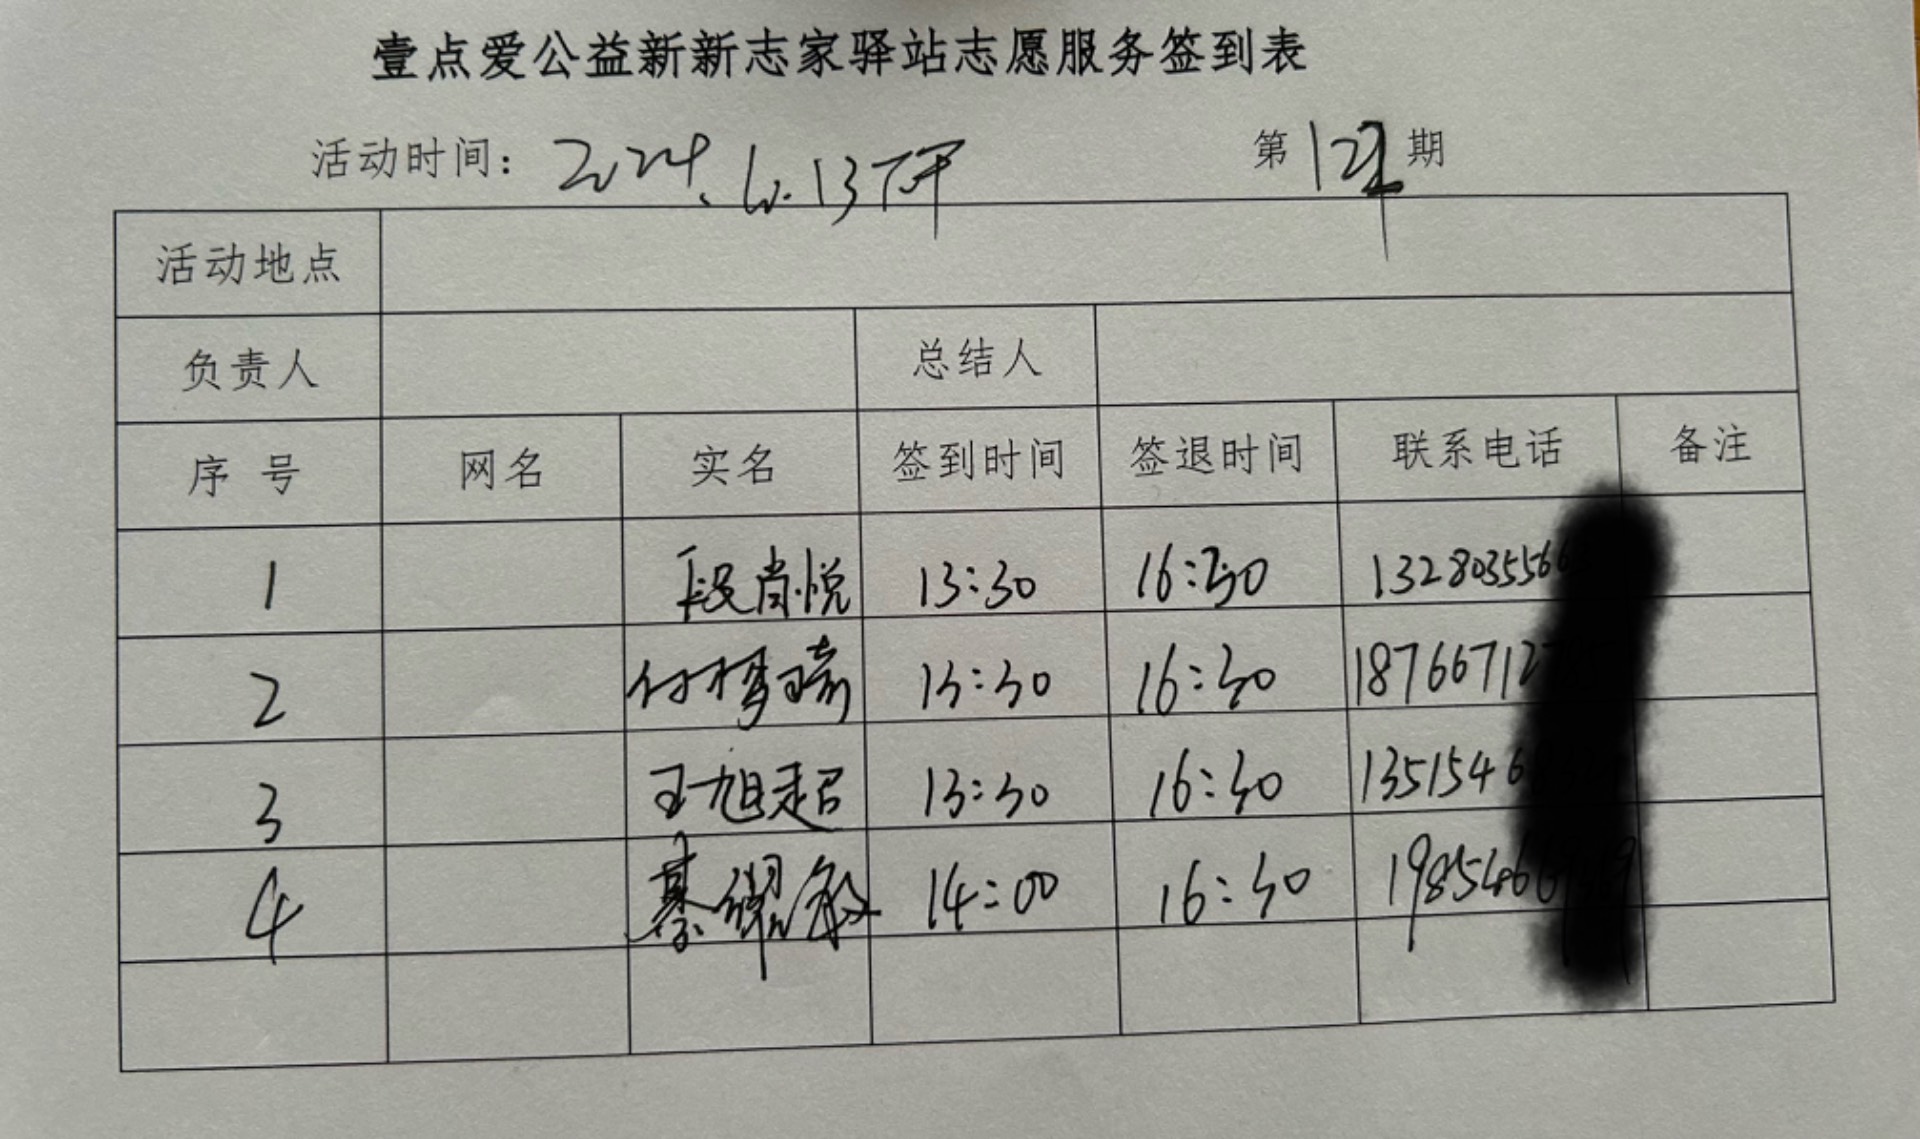 壹点爱公益新新志家驿站志愿服务签到表
活动时间: 2024.6.13下午 第 期
活动地点
负责人 总结人
序号 网名 实名 签到时间 签退时间 联系电话 备注
1 段肖悦 13:30 16:30 1328035566
2 付梦琦 13:30 16:30 18766712
3 王旭超 13:30 16:30 1351546
4 綦耀敏 14:00 16:30 1985466